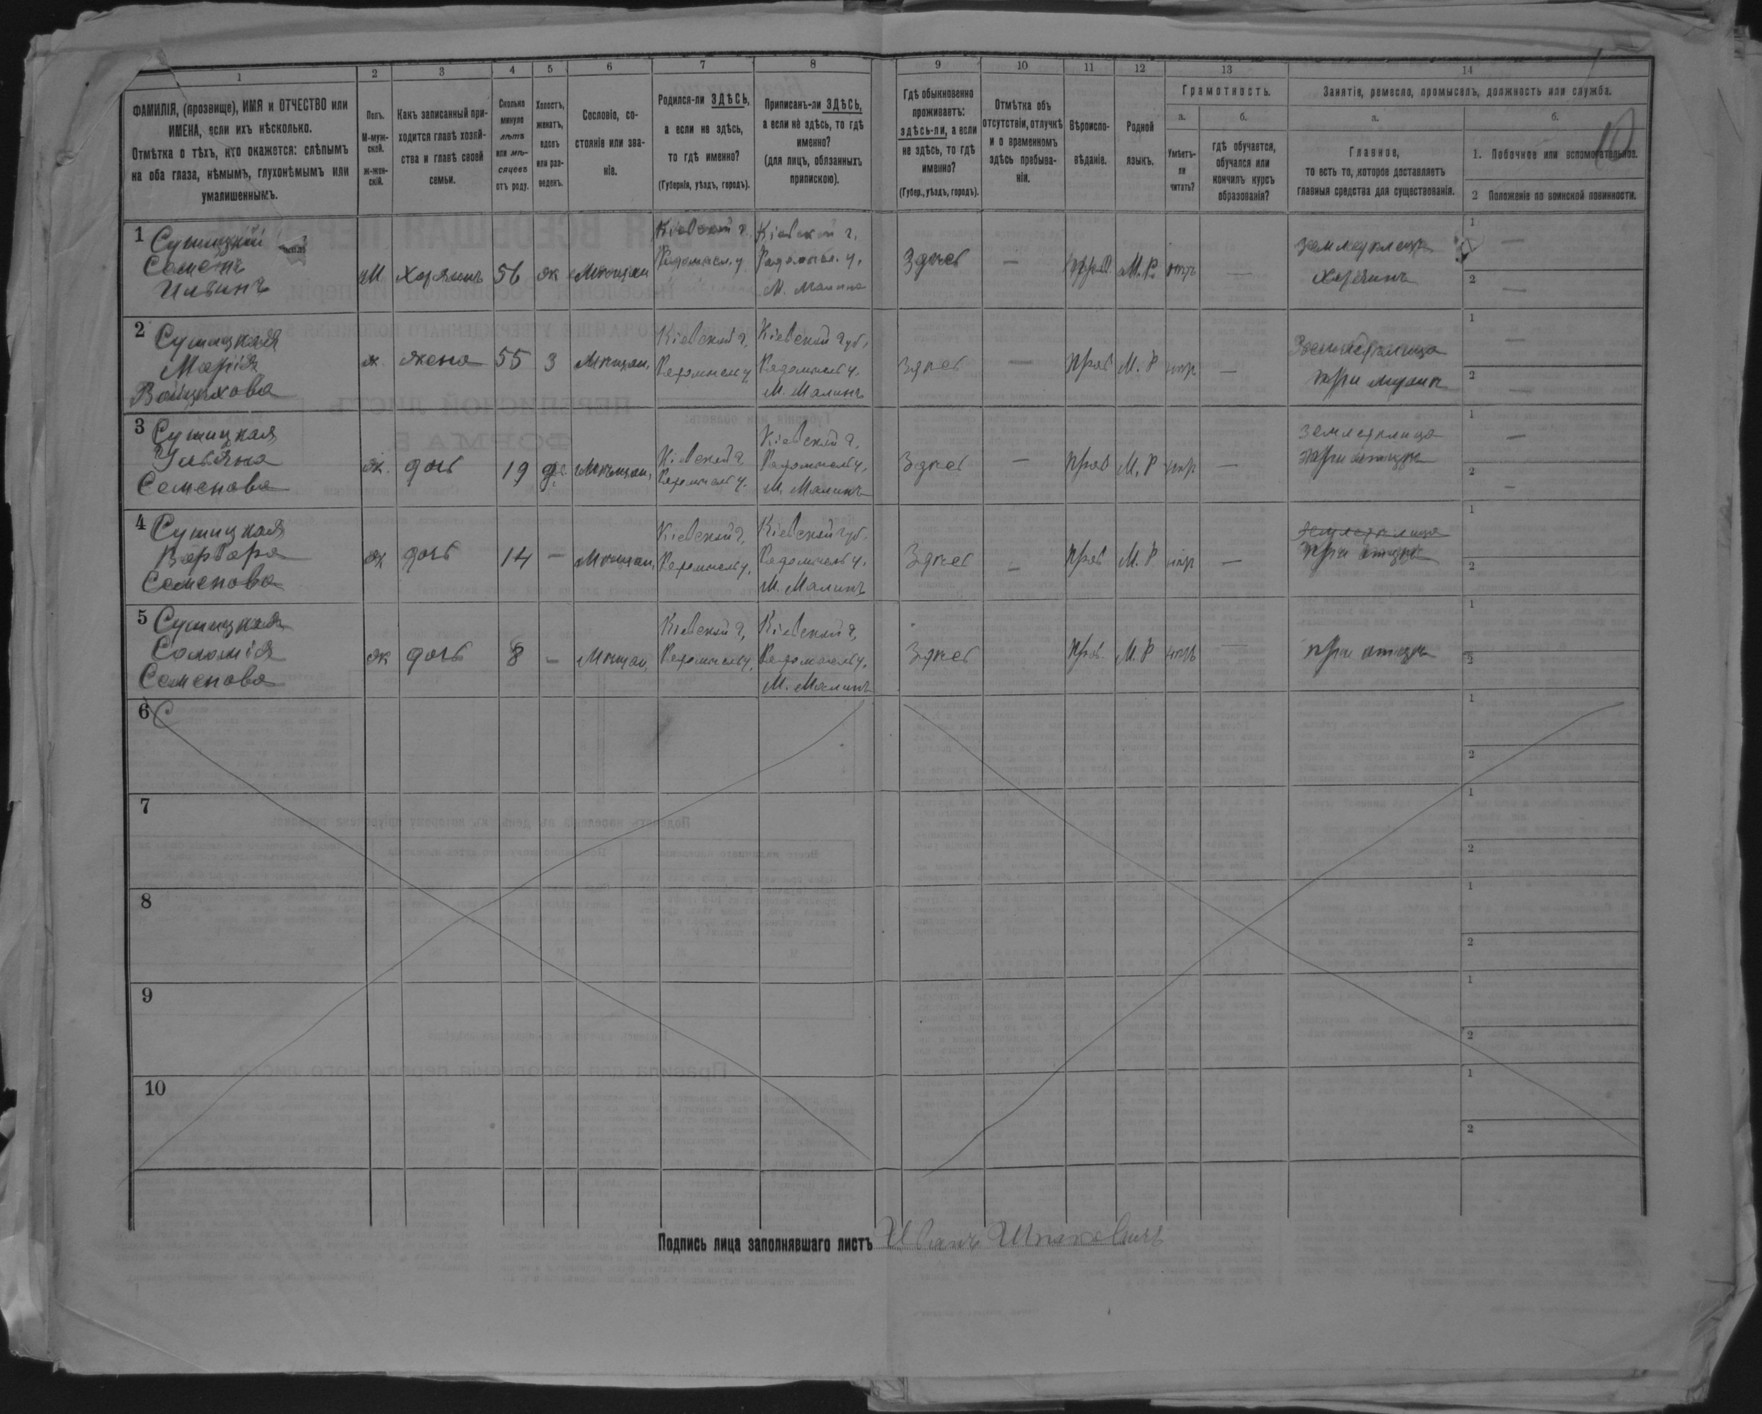 1 2 3 4 5 6 7 8 9 10 11 12 13 14
ФАМИЛІЯ, (прозвище), ИМЯ и ОТЧЕСТВО или
ИМЕНА, если ихъ нѣсколько.
Отмѣтка о тѣхъ, кто окажется: слѣпымъ
на оба глаза, нѣмымъ, глухонѣмымъ или
умалишеннымъ.
Полъ.
М-муж-
ской.
ж-жен-
скій.
Какъ записанный при-
ходится главѣ хозяй-
ства и главѣ своей
семьи.
Сколько
минуло
лѣтъ
или мѣ-
сяцевъ
отъ роду.
Холостъ,
женатъ,
вдовъ
или раз-
веденъ.
Сословіе, со-
стояніе или зва-
ніе.
Родился-ли ЗДѢСЬ,
а если не здѣсь,
то гдѣ именно?
(Губернія, уѣздъ, городъ).
Приписанъ-ли ЗДѢСЬ,
а если не здѣсь, то гдѣ
именно?
(для лицъ, обязанныхъ
припискою).
Гдѣ обыкновенно
проживаетъ:
здѣсь-ли, а если
не здѣсь, то гдѣ
именно?
(Губер., уѣздъ, городъ).
Отмѣтка объ
отсутствіи, отлучкѣ
и о временномъ
здѣсь пребыва-
ніи.
Вѣроиспо-
вѣданіе.
Родной
языкъ.
Грамотность.
а.
Умѣетъ-
ли
читать?
б.
гдѣ обучается,
обучался или
кончилъ курсъ
образованія?
Занятіе, ремесло, промыселъ, должность или служба.
а.
Главное,
то есть то, которое доставляетъ
главныя средства для существованія.
б.
1. Побочное или вспомогательное.
2 Положеніе по воинской повинности.
1 Сушицкій
Семенъ
Ильинъ
М. хозяинъ 56 ж Мѣщан
Кіевской г.
Радомысл. у
Кіевской г.
Радомысл. у.
М. Малинъ
Здѣсь — прав М. Р. нѣтр —
земледѣлецъ
хозяинъ
1 —
2 —
2 Сушицкая
Марія
Войцѣхова
ж. жена 55 з Мѣщан.
Кіевской г.
Радомысл у
Кіевской губ.
Радомысл у.
М. Малинъ
Здѣсь — прав М. Р —
Земледѣлица
при мужѣ
1 —
2 —
3 Сушицкая
Ульяна
Семенова
ж. дочь 19 дѣ. Мѣщан.
Кіевской г.
Радомысл у.
Кіевской г.
Радомысл у.
М. Малинъ
Здѣсь — прав М. Р —
Земледѣлица
при отцѣ
1 —
2 —
4 Сушицкая
Варвара
Семенова
ж дочь 14 — Мѣщан.
Кіевской г.
Радомысл у.
Кіевской губ.
Радомысл у.
М. Малинъ
Здѣсь — прав М. Р —
Земледѣлица
при отцѣ
1
2
5 Сушицкая
Соломія
Семенова
ж дочь 8 — Мѣщан.
Кіевской г.
Радомысл у.
Кіевской г.
Радомысл у.
М. Малинъ
Здѣсь прав. М. Р —
при отцѣ
1
2
6
1
2
7
1
2
8
1
2
9
1
2
10
1
2
Подпись лица заполнявшаго листъ Иванъ